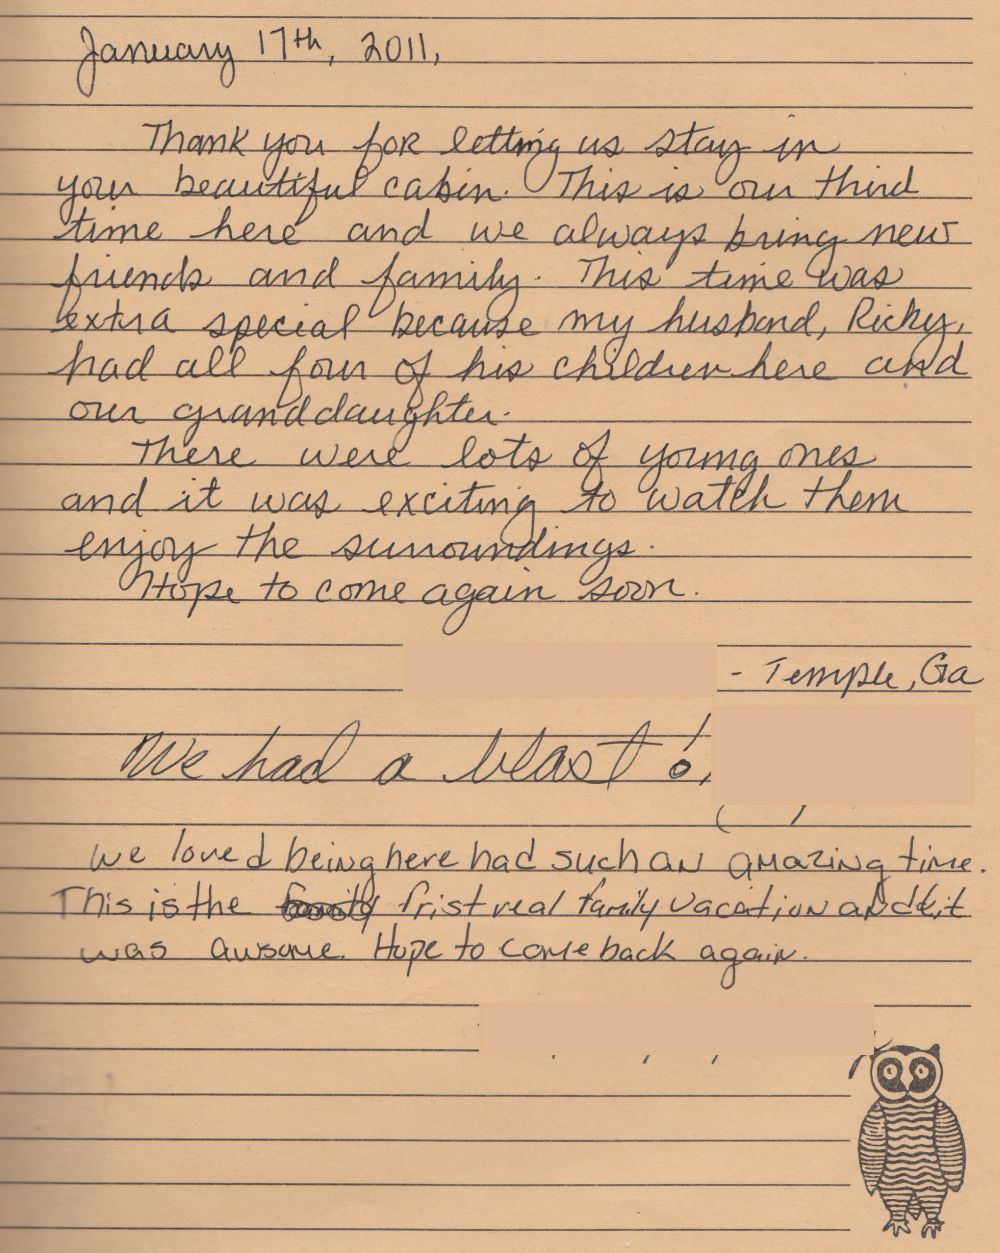 January 17th, 2011,
Thank you for letting us stay in
your beautiful cabin. This is our third
time here and we always bring new
friends and family. This time was
extra special because my husband, Ricky,
had all four of his children here and
our granddaughter.
There were lots of young ones
and it was exciting to watch them
enjoy the surroundings.
Hope to come again soon.
- Temple, Ga
We had a blast!
we loved being here had such an amazing time.
This is the frist real family vacation and it
was awsome. Hope to come back again.